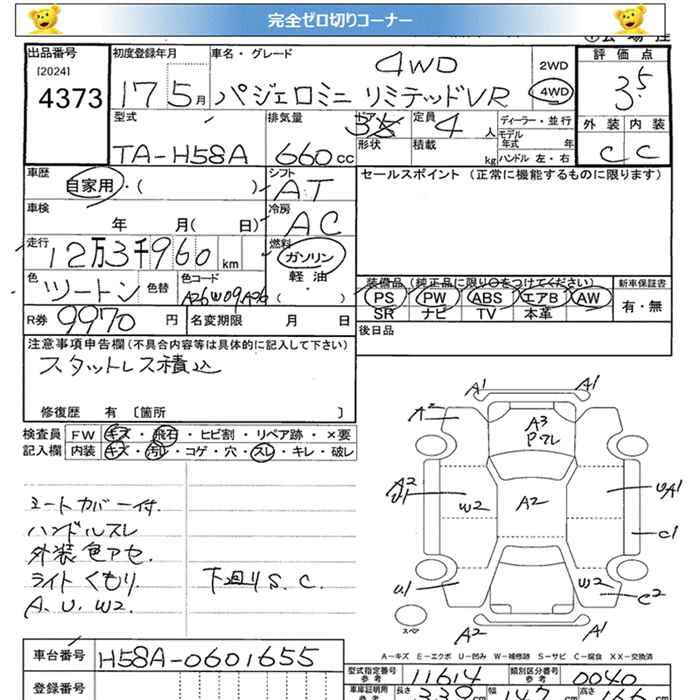 完全ゼロ切りコーナー
出品番号
[2024]
4373
初度登録年月
17 5月
車名・グレード
4WD
パジェロミニ リミテッドVR
2WD
4WD
評価点
3.5
外装 内装
C C
型式
TA-H58A
排気量
660cc
ドア
35
形状
定員
4人
積載
kg
ディーラー・並行
モデル
年式 年
ハンドル 左・右
車歴
自家用・( )
シフト
AT
車検
年 月( 日)
冷房
AC
走行
12万3千960km
燃料
ガソリン
軽油
・
( )
色
ツートン
色替
色コード
A26W09A26
R券 9970円
名変期限 月 日
セールスポイント(正常に機能するものに限ります)
装備品(純正品に限り○をつけてください)
PS PW ABS エアB AW
SR ナビ TV 本革
新車保証書
有・無
後日品
注意事項申告欄(不具合内容等は具体的に記入して下さい)
スタットレス積込
修復歴 有〔箇所 〕
検査員 FW キズ・飛石・ヒビ割・リペア跡・×要
記入欄 内装 キズ・汚レ・コゲ・穴・スレ・キレ・破レ
シートカバー付.
ハンドルスレ
外装色アセ.
ライトくもり.
A.U.W2.
下廻りS.C.
A1 A1
A2
A3
Pマレ
A2
U1
W2
A2
UA1
C1
U1
W2
C2
スペア
A2
A1
A−キズ E−エクボ U−凹み W−補修跡 S−サビ C−腐食 XX−交換済
車台番号 H58A-0601655
登録番号
型式指定番号
参考
11614
類別区分番号
参考
0040
車庫証明用
参考
長さ
339cm
幅
147
高さ
166